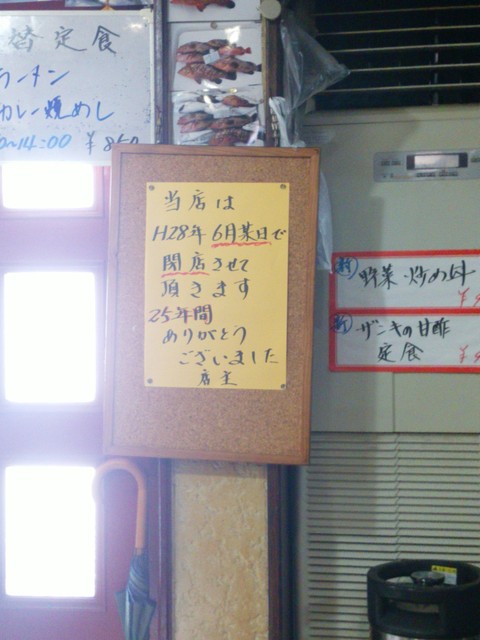 替定食
ラーメン
カレー焼めし
~14:00 ¥850
当店は
H28年6月某日で
閉店させて
頂きます
25年間
ありがとう
ございました
店主
新 野菜炒め丼
新 ザンキの甘酢
定食